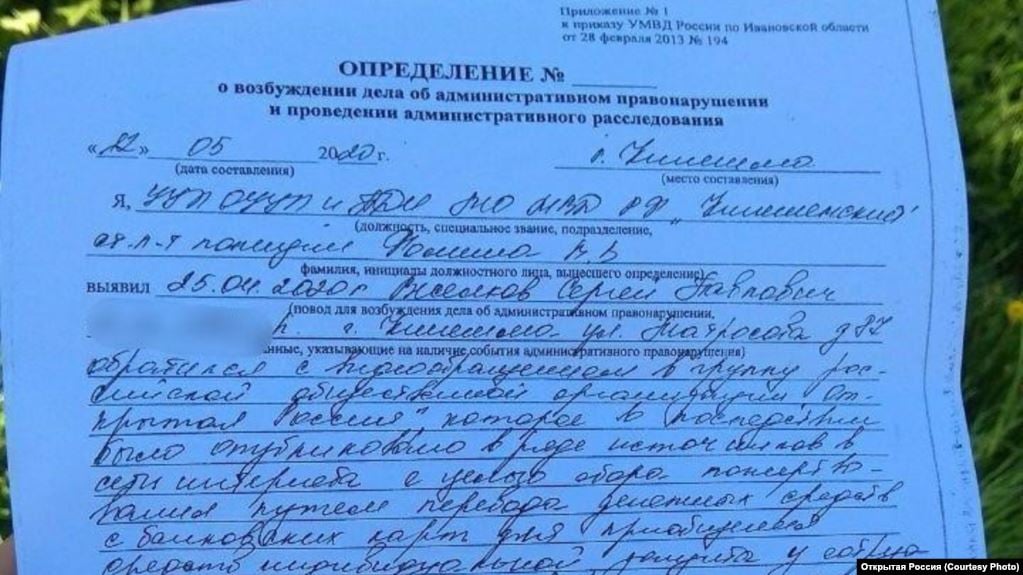 Приложение № 1
к приказу УМВД России по Ивановской области
от 28 февраля 2013 № 194
ОПРЕДЕЛЕНИЕ № ________
о возбуждении дела об административном правонарушении
и проведении административного расследования
«22» 05 2020 г. г. Кинешма
(дата составления) (место составления)
Я, УУП ОУУП и ПДН МО МВД РФ „Кинешемский"
(должность, специальное звание, подразделение,
ст. л-т полиции
фамилия, инициалы должностного лица, вынесшего определение)
выявил 25.04.2020 г Сергей Павлович
(повод для возбуждения дела об административном правонарушении,
г. Кинешма ул. Матросова д
данные, указывающие на наличие события административного правонарушения)
обратился с видеообращением в группу рос-
сийской общественной организации „От-
крытая Россия", которое в последствии
было опубликовано в ряде источников в
сети интернета с целью сбора пожертво-
вания путем перевода денежных средств
с банковских карт для приобщения
средств индивидуальной защиты у сотруд
Открытая Россия (Courtesy Photo)